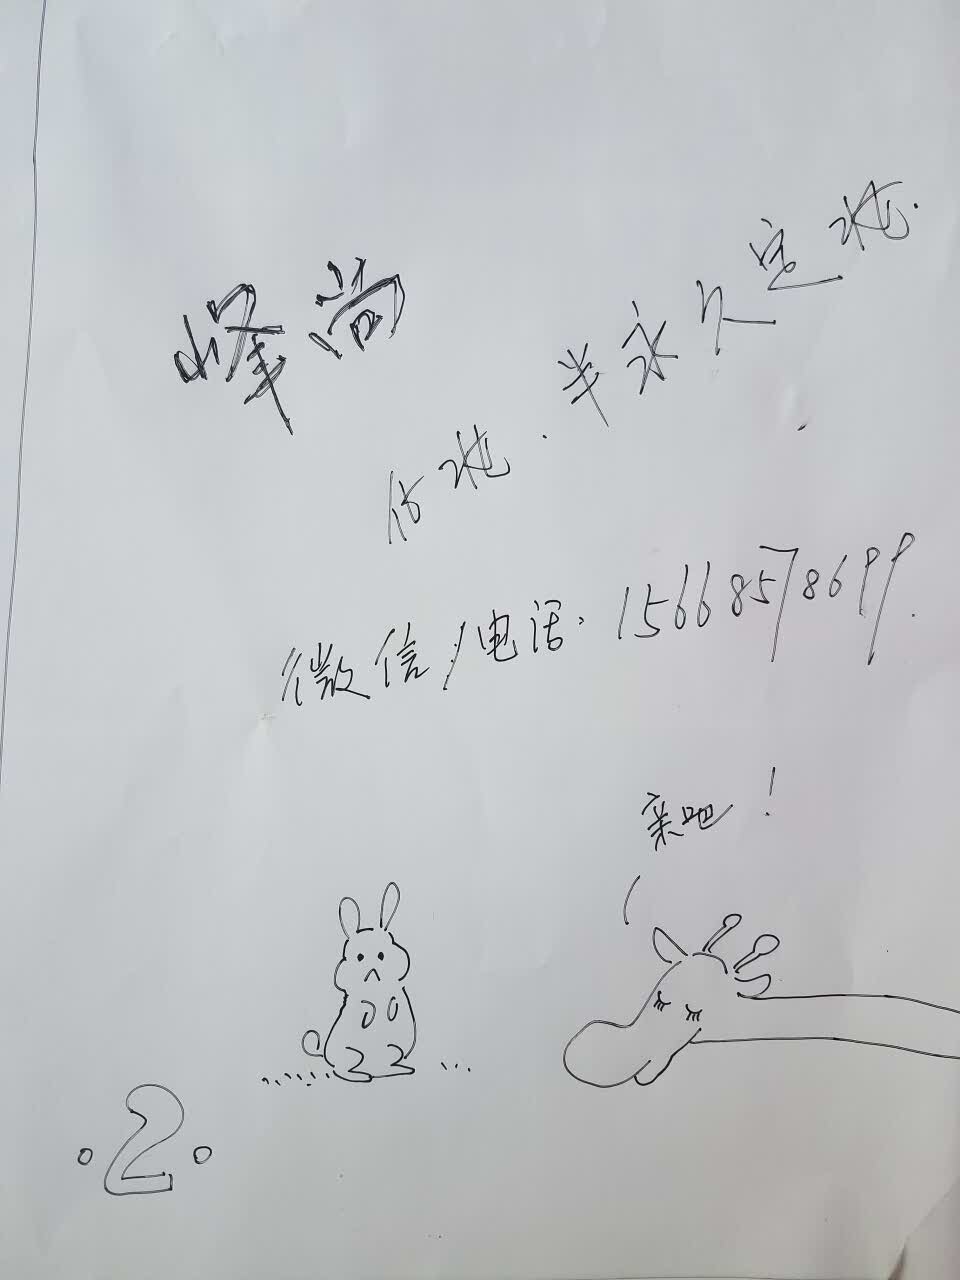 峰尚
化妆.半永久定妆.
微信/电话:15668578699.
亲吧!
2